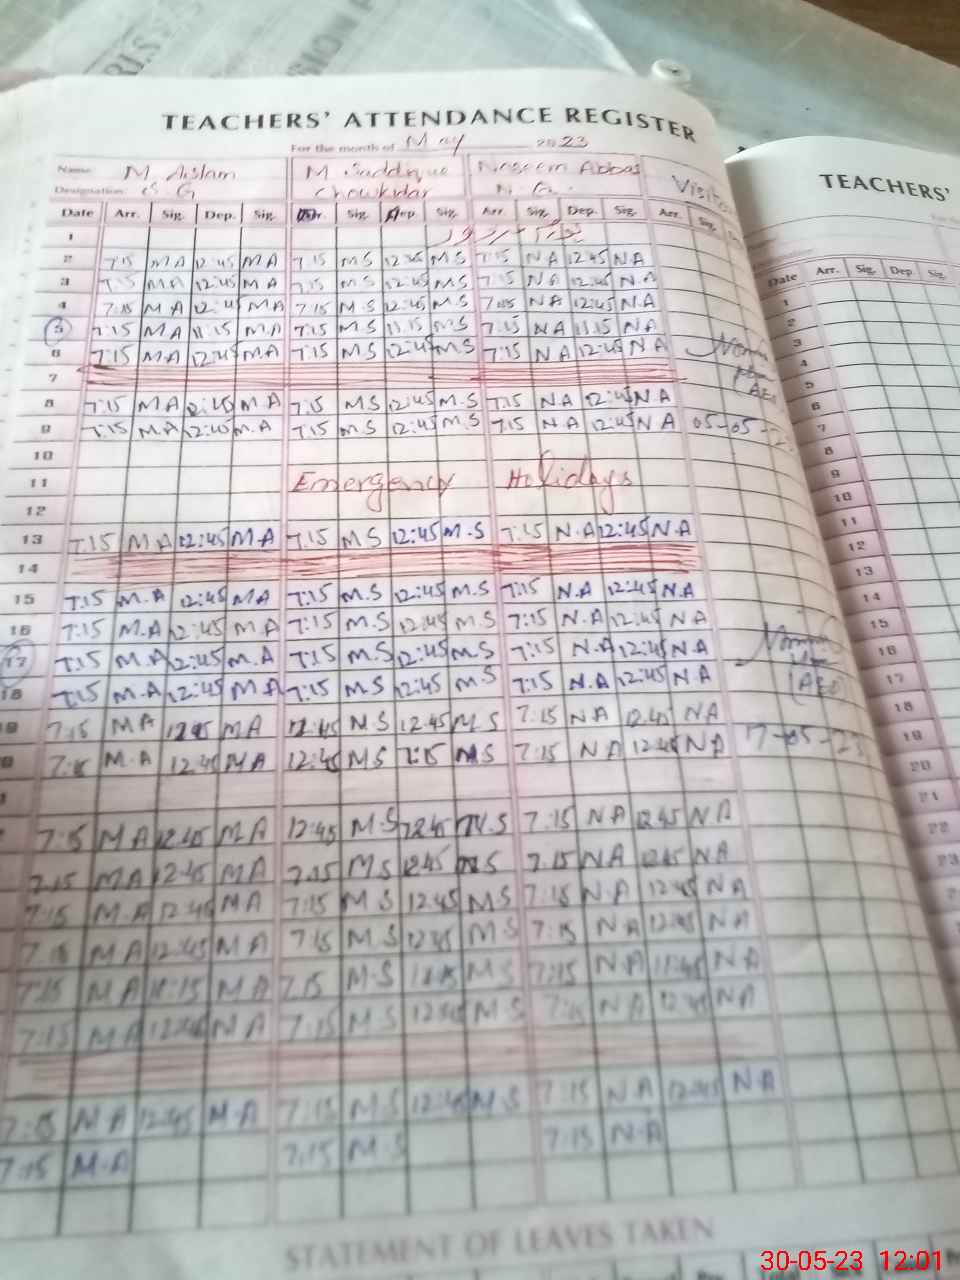 TEACHERS' ATTENDANCE REGISTER
For the month of May 2023
TEACHERS'
Name M Aslam M Saddique Naseem Abbas
Designation S.G Chowkidar N.Q. Visitor
Date Arr. Sig. Dep. Sig. Arr. Sig. Dep. Sig. Arr. Sig. Dep. Sig. Arr. Sig.
Date Arr. Sig. Dep. Sig.
1
2 7:15 MA 12:45 MA 7:15 MS 12:45 MS 7:15 NA 12:45 NA
3 7:15 MA 12:45 MA 7:15 MS 12:45 M.S 7:15 NA 12:45 N.A
4 7:15 MA 12:45 MA 7:15 M.S 12:45 M.S 7:15 NA 12:45 NA
5 7:15 MA 11:15 M.A 7:15 M.S 11.15 M.S 7:15 NA 11.15 NA
6 7:15 MA 12:45 M.A 7:15 MS 12:45 M.S 7:15 NA 12:45 NA
7
(AEO)
8 7:15 MA 12:45 M.A 7:15 MS 12:45 M.S 7:15 NA 12:45 NA
9 7:15 M.A 12:45 M.A 7:15 M.S 12:45 M.S 7:15 N.A 12:45 NA 05-05-23
10
11 Emergency Holidays
12
13 7:15 MA 12:45 M.A 7:15 MS 12:45 M.S 7:15 N.A 12:45 N.A
14
15 7:15 M.A 12:45 MA 7:15 M.S 12:45 M.S 7:15 N.A 12:45 N.A
16 7:15 M.A 12:45 M.A 7:15 M.S 12:45 M.S 7:15 N.A 12:45 NA
17 7:15 M.A 12:45 M.A 7:15 M.S 12:45 M.S 7:15 N.A 12:45 N.A
18 7:15 M.A 12:45 M.A 7:15 M.S 12:45 M.S 7:15 N.A 12:45 N.A (AEO)
19 7:15 MA 12:45 MA 12:45 M.S 12.45 M.S 7:15 NA 12.45 NA 17-05-23
7:15 M.A 12.45 MA 12:45 MS 7:15 MS 7:15 NA 12:45 NA
7:15 MA 12:45 MA 12:45 M.S 12.45 M.S 7:15 NA 12.45 NA
7.15 MA 12:45 MA 7:15 MS 12.45 MS 7.15 NA 12:45 NA
7:15 M.A 12:45 MA 7:15 MS 12.45 MS 7:15 N.A 12:45 NA
7:15 MA 12:45 MA 7:15 M.S 12:45 MS 7:15 NA 12:45 NA
7:15 MA 11:15 MA 7:15 M.S 11:15 M.S 7:15 N.A 11:45 NA
7:15 MA 12:45 NA 7:15 M.S 12:45 M.S 7:15 NA 12:45 NA
7:15 NA 12:45 M.A 7:15 M.S 12:45 M.S 7:15 NA 12:45 N.A
7:15 M.A 7:15 M.S 7:15 N.A
1
2
3
4
5
6
7
8
9
10
11
12
13
14
15
16
17
18
19
20
21
22
23
STATEMENT OF LEAVES TAKEN
30-05-23 12:01